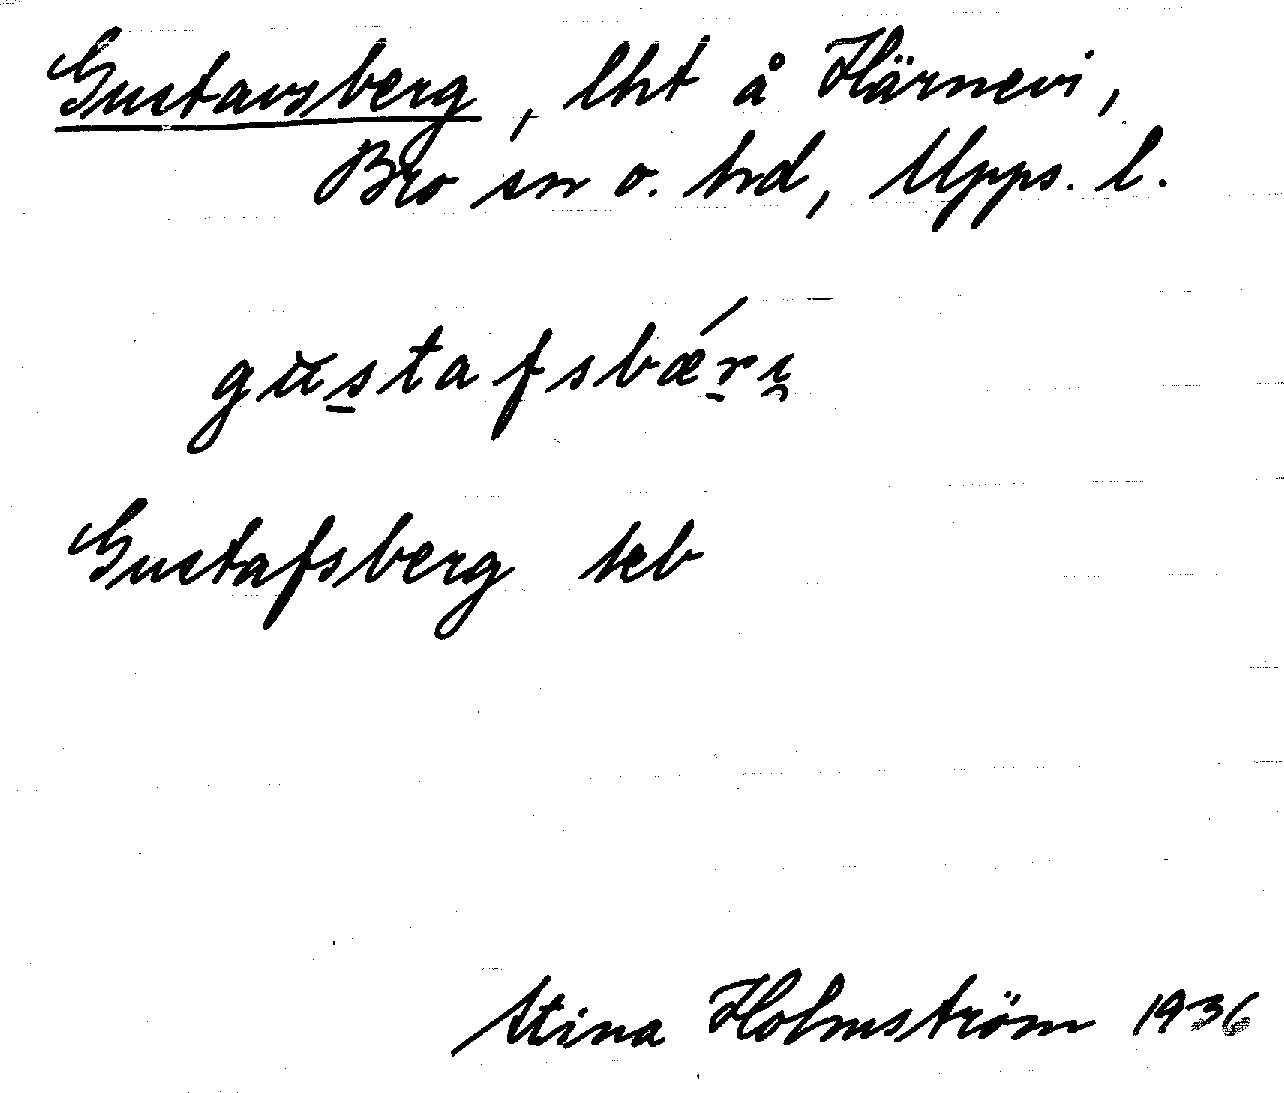 Gustavsberg, lht å Härnevi,
Bro sn o. hd, Upps. l.
gustafsbærį
Gustafsberg keb
Stina Holmström 1936